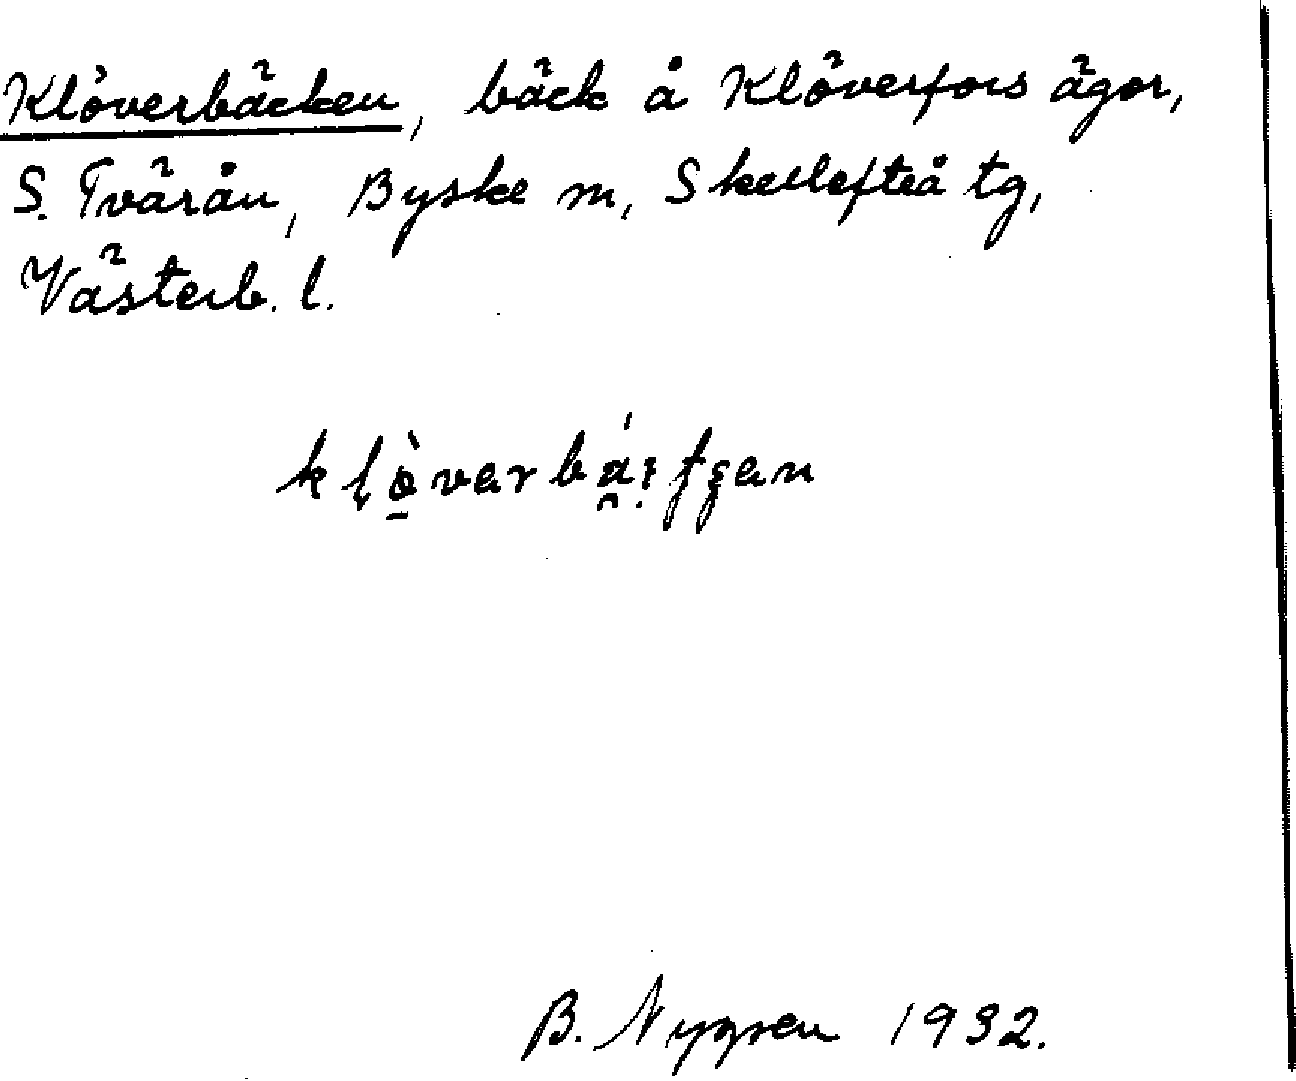 Klöverbäcken, bäck å Klöverfors ägor,
S. Tvärån, Byske m, Skellefteå tg,
Västerb. l.
B. Nygren 1932.